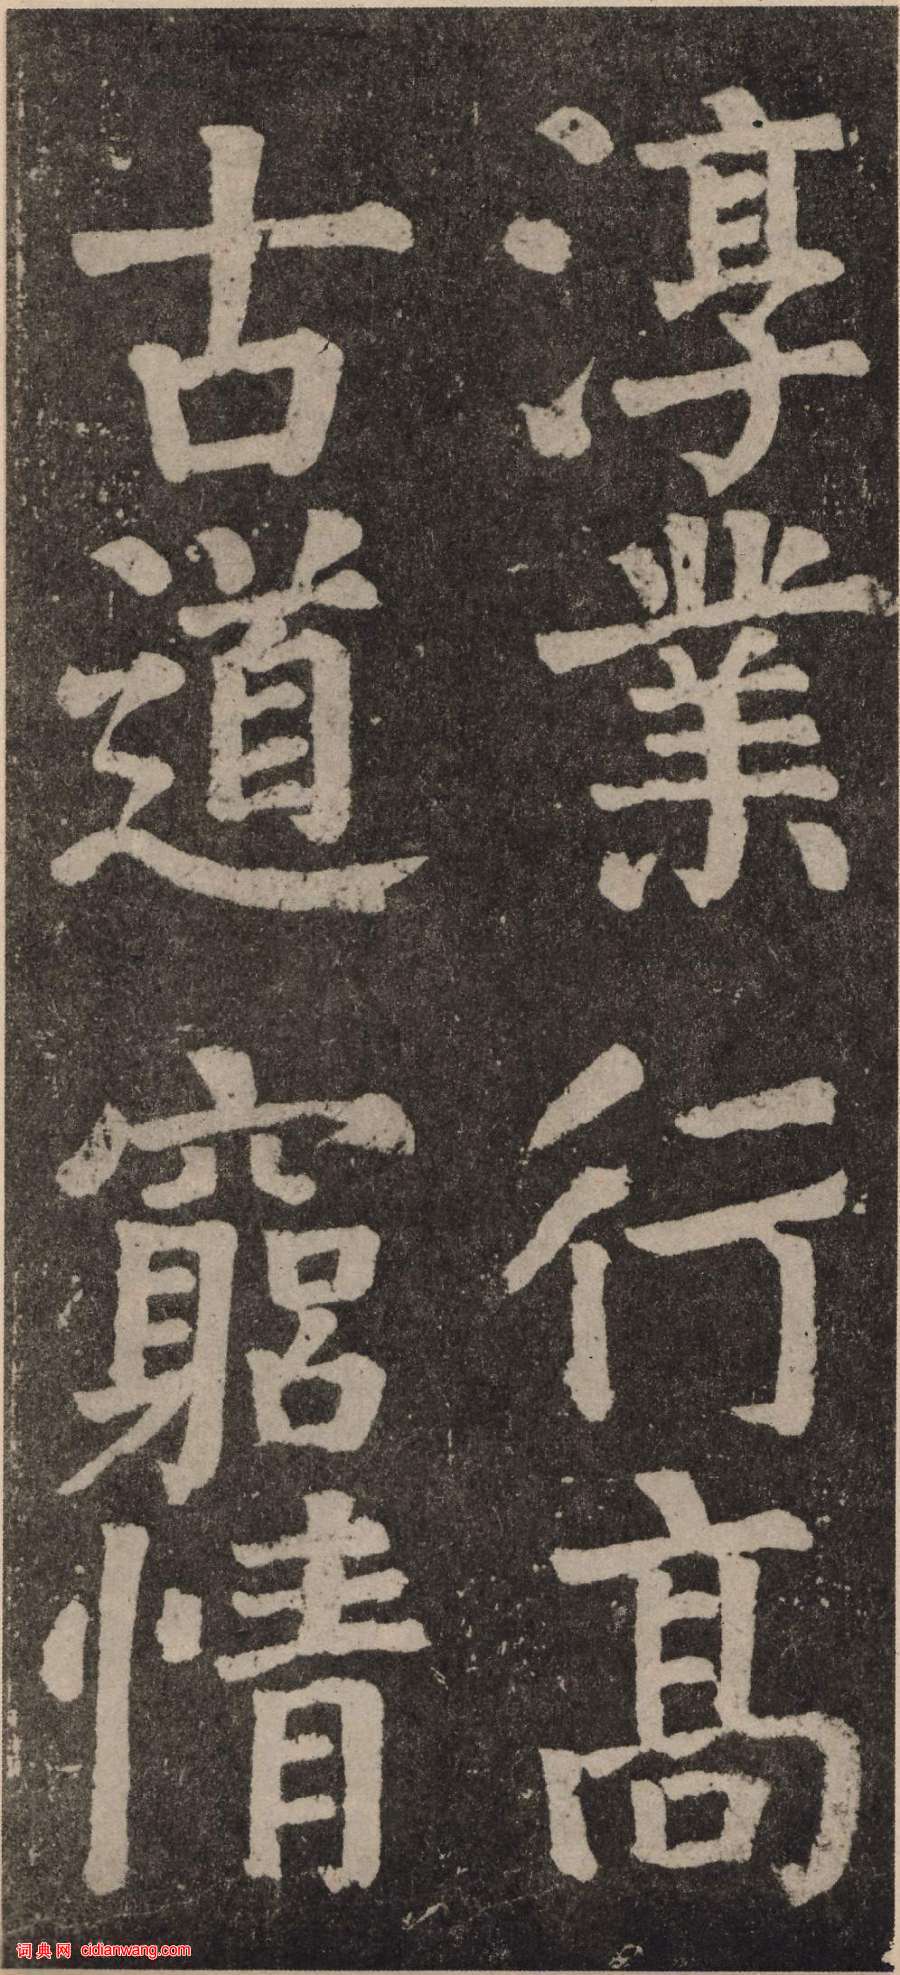 淳業行高
古道窮情
词典网 cidianwang.com